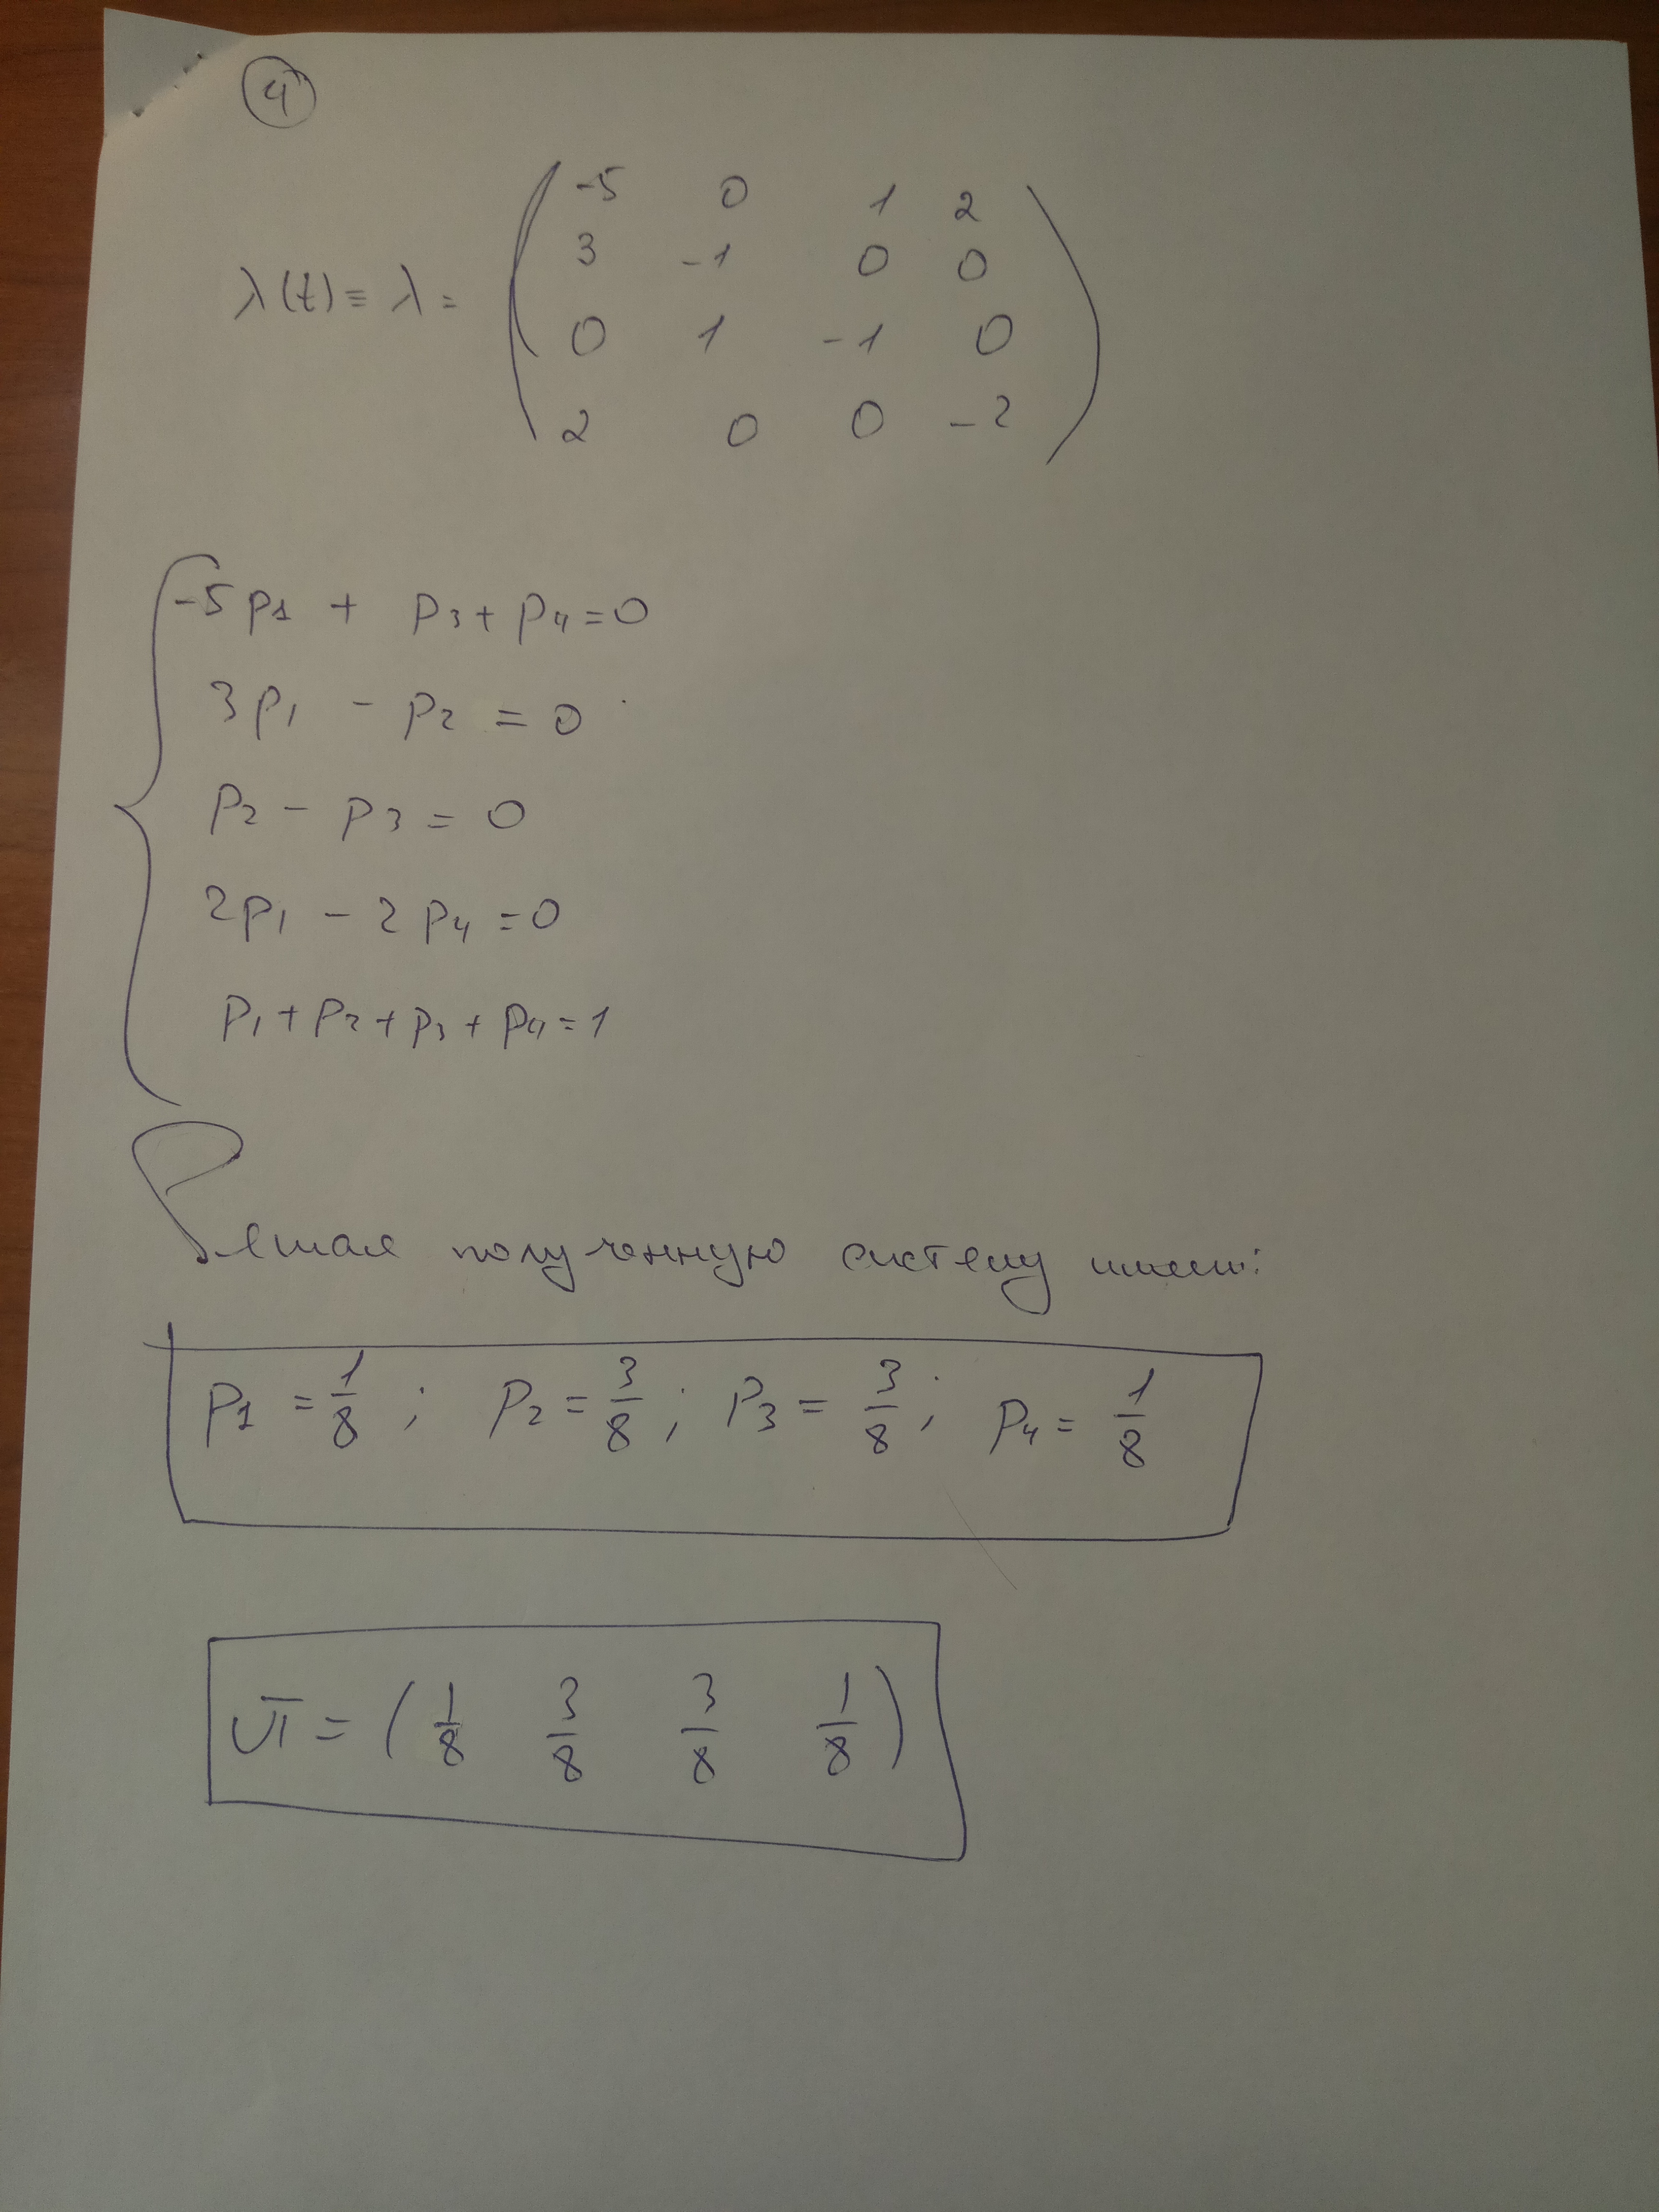 4
λ(t) ≡ λ = ( -5 0 1 2
3 -1 0 0
0 1 -1 0
2 0 0 -2 )
-5p1 + p3 + p4 = 0
3p1 - p2 = 0
p2 - p3 = 0
2p1 - 2p4 = 0
p1 + p2 + p3 + p4 = 1
Решая полученную систему имеем:
p1 = 1/8 ; p2 = 3/8 ; p3 = 3/8 ; p4 = 1/8
π = ( 1/8 3/8 3/8 1/8 )